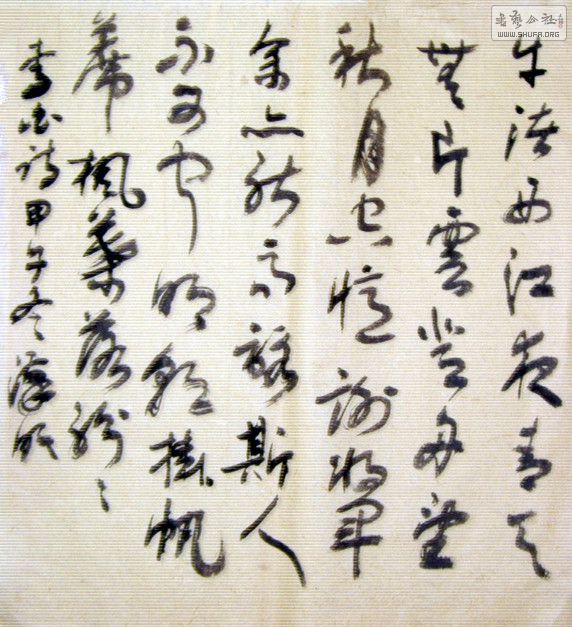 牛渚西江夜青天
無片雲登舟望
秋月空憶謝将軍
余亦能高詠斯人
不可聞明朝掛帆
蓆楓葉落紛々
李白詩甲午冬
書藝公社
WWW.SHUFA.ORG